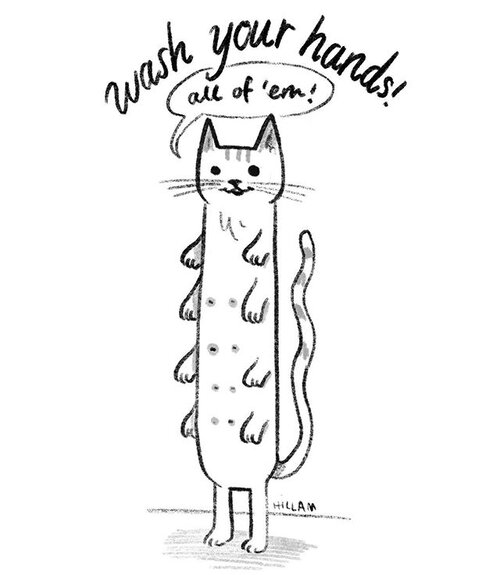 wash your hands!
all of 'em!
HILLAM